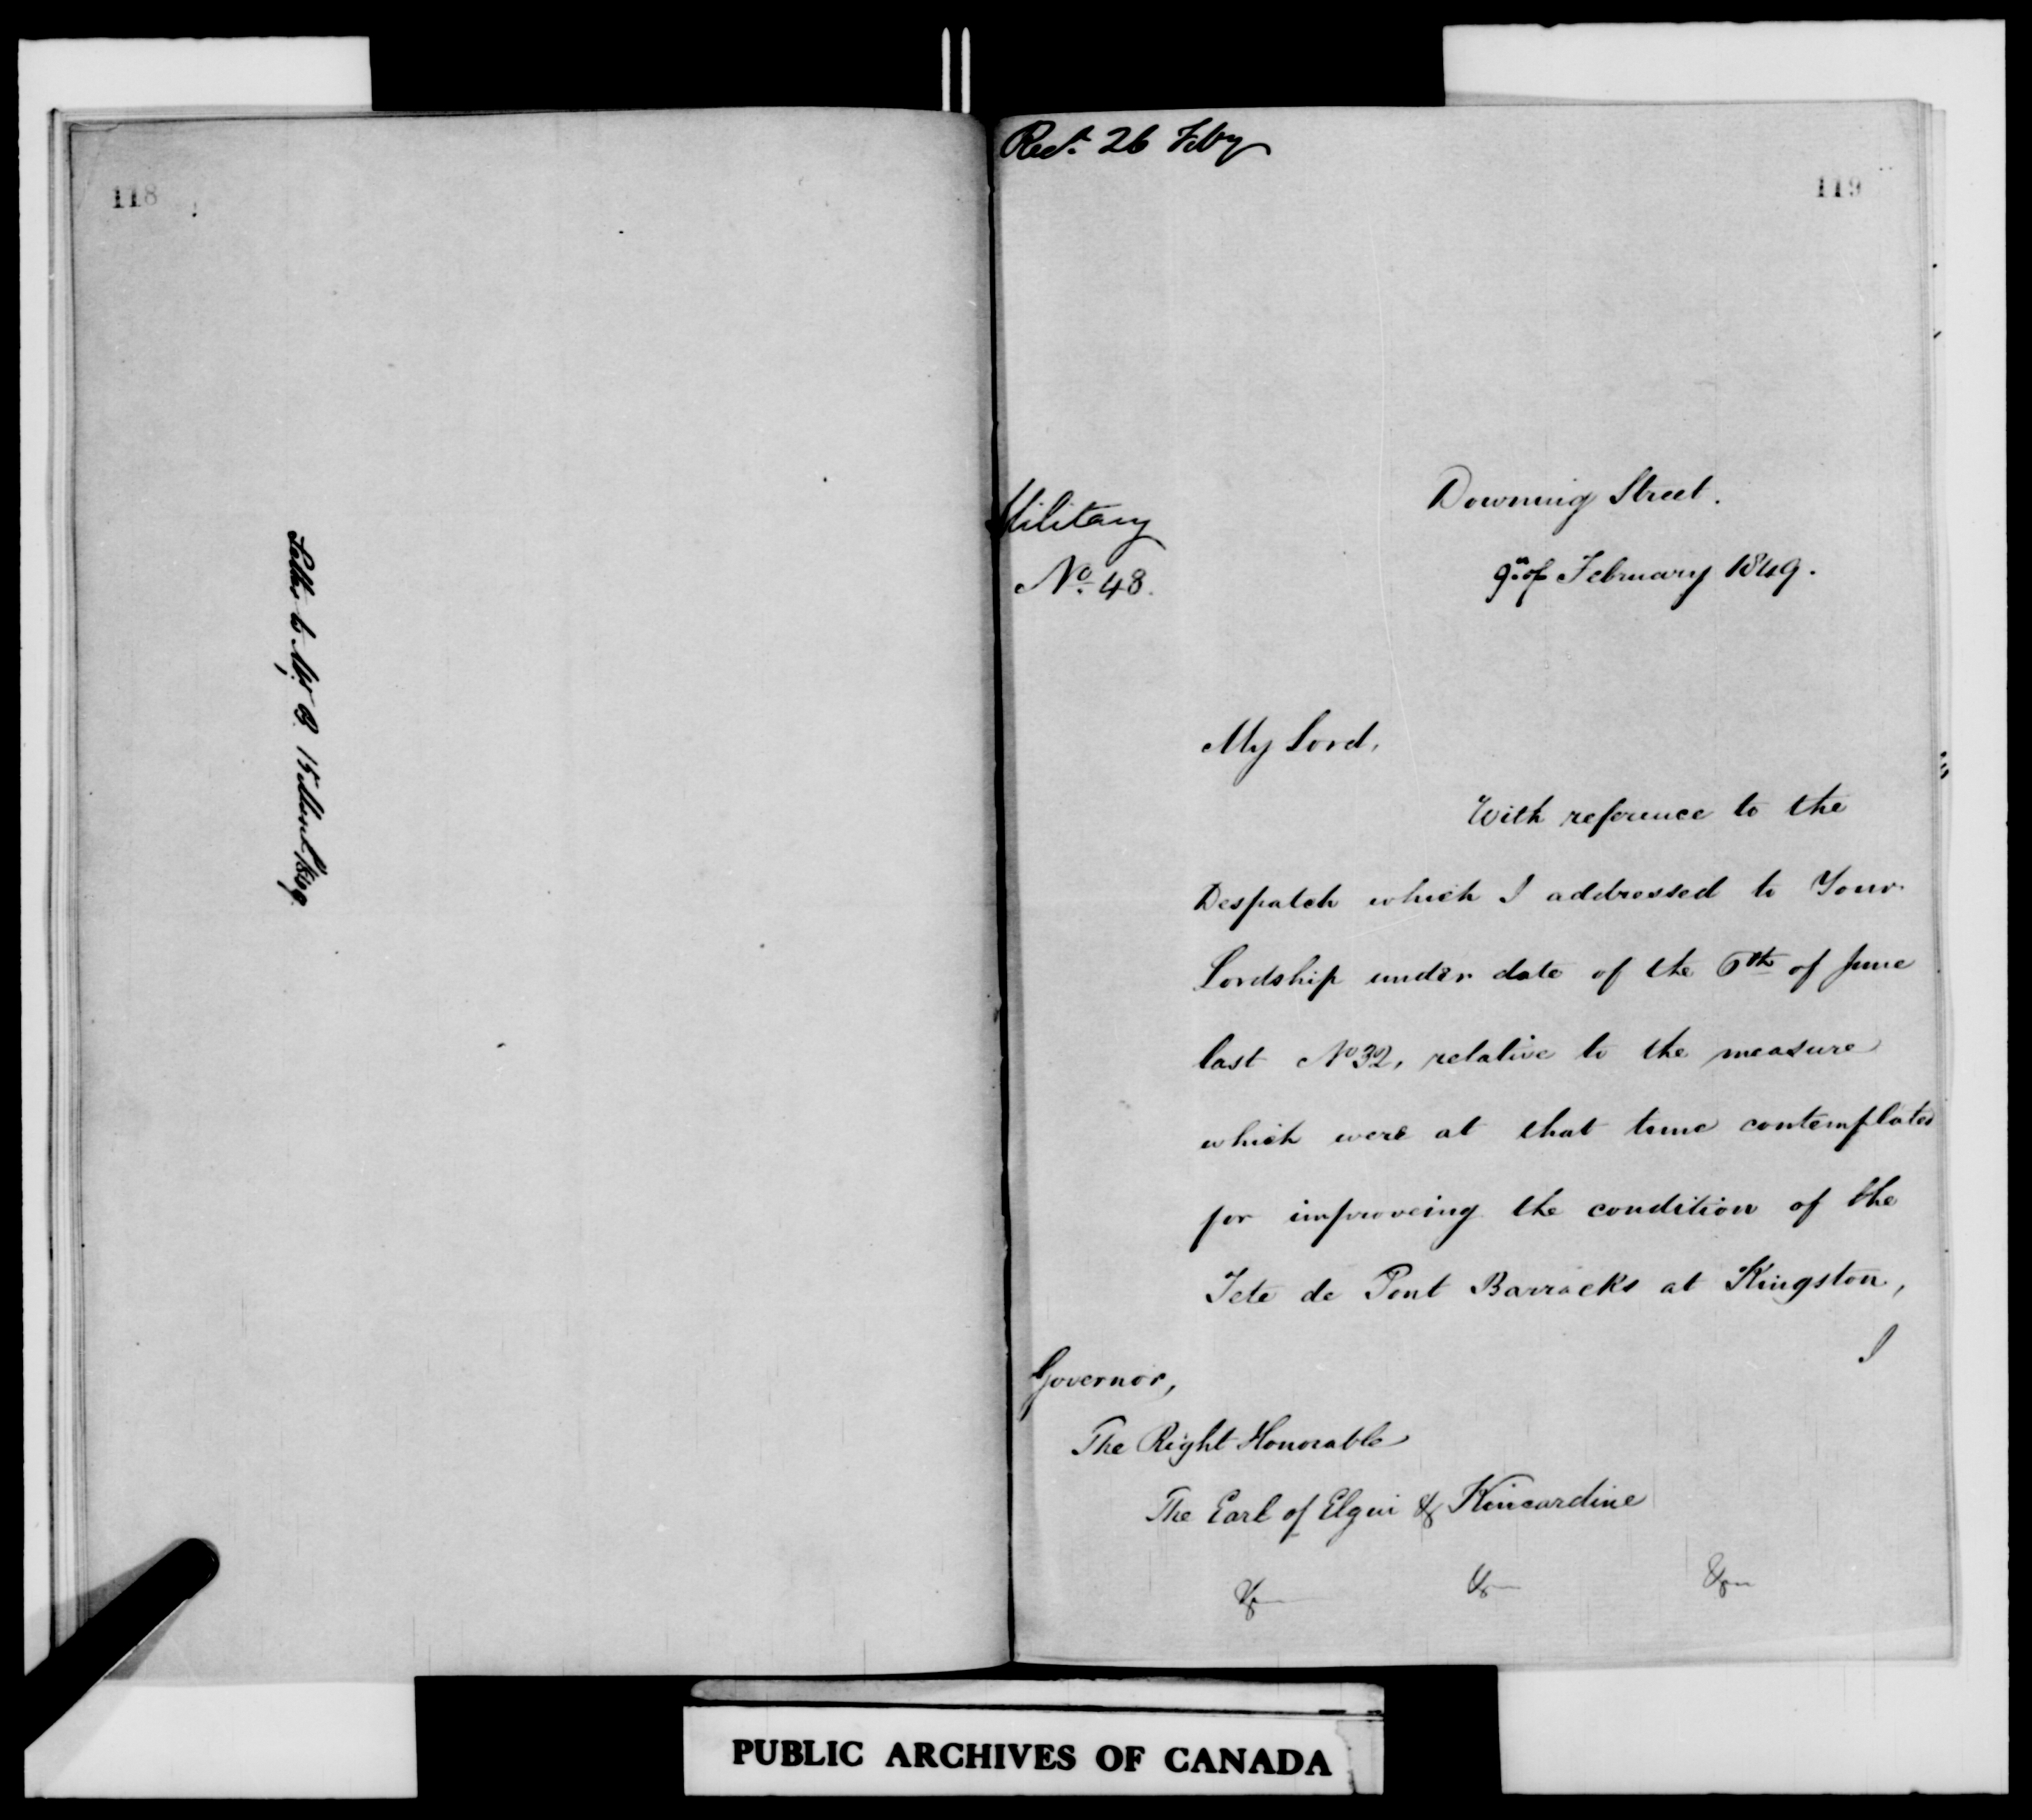 118
Letter to
15 March 1849
Recd. 26 Feby
119
Military
No. 48.
Downing Street.
9th of February 1849.
My Lord,
With reference to the
Despatch which I addressed to Your
Lordship under date of the 6th of June
last No 32, relative to the measure
which were at that time contemplated
for improveing the condition of the
Tete de Pont Barracks at Kingston,
I
Governor,
The Right Honorable
The Earl of Elgin & Kincardine
&c &c &c
PUBLIC ARCHIVES OF CANADA